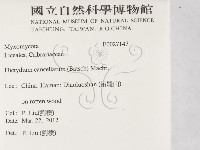 國立自然科學博物館
NATIONAL MUSEUM OF NATURAL SCIENCE
TAICHUNG, TAIWAN, R.O.CHINA
Myxomycota
Liceales, Cribrariaceae
Dictydium cancellatum (Batsch) Macbr.
Loc: China, Hainan: Dianluoshan
on rotten wood
Col: P. Liu
Date: Mar. 22, 2012
Det: P. Liu